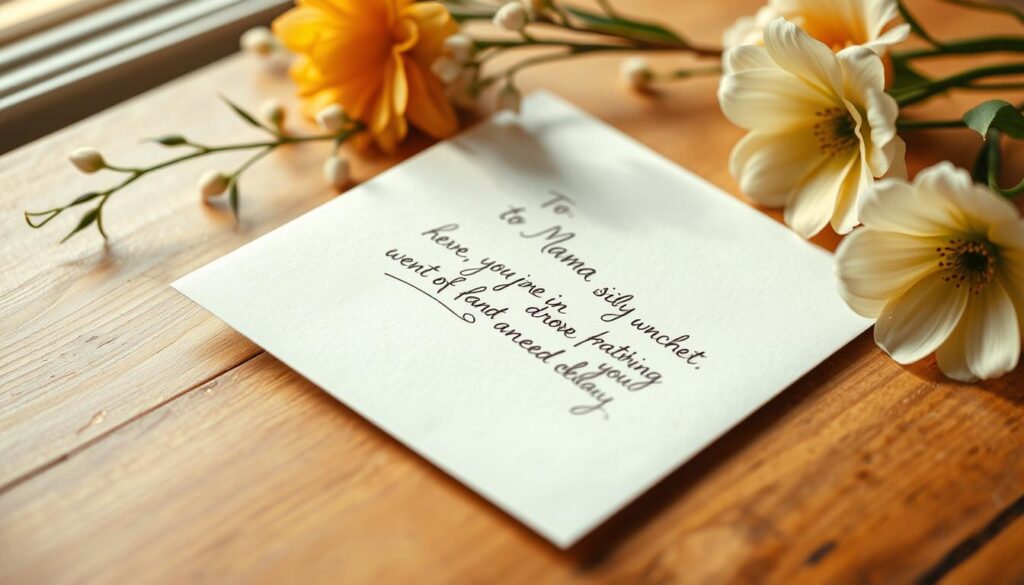 To.
to Mama sily wnchet.
heve, you jne in drove patining
went of fand aneed you
cklauy